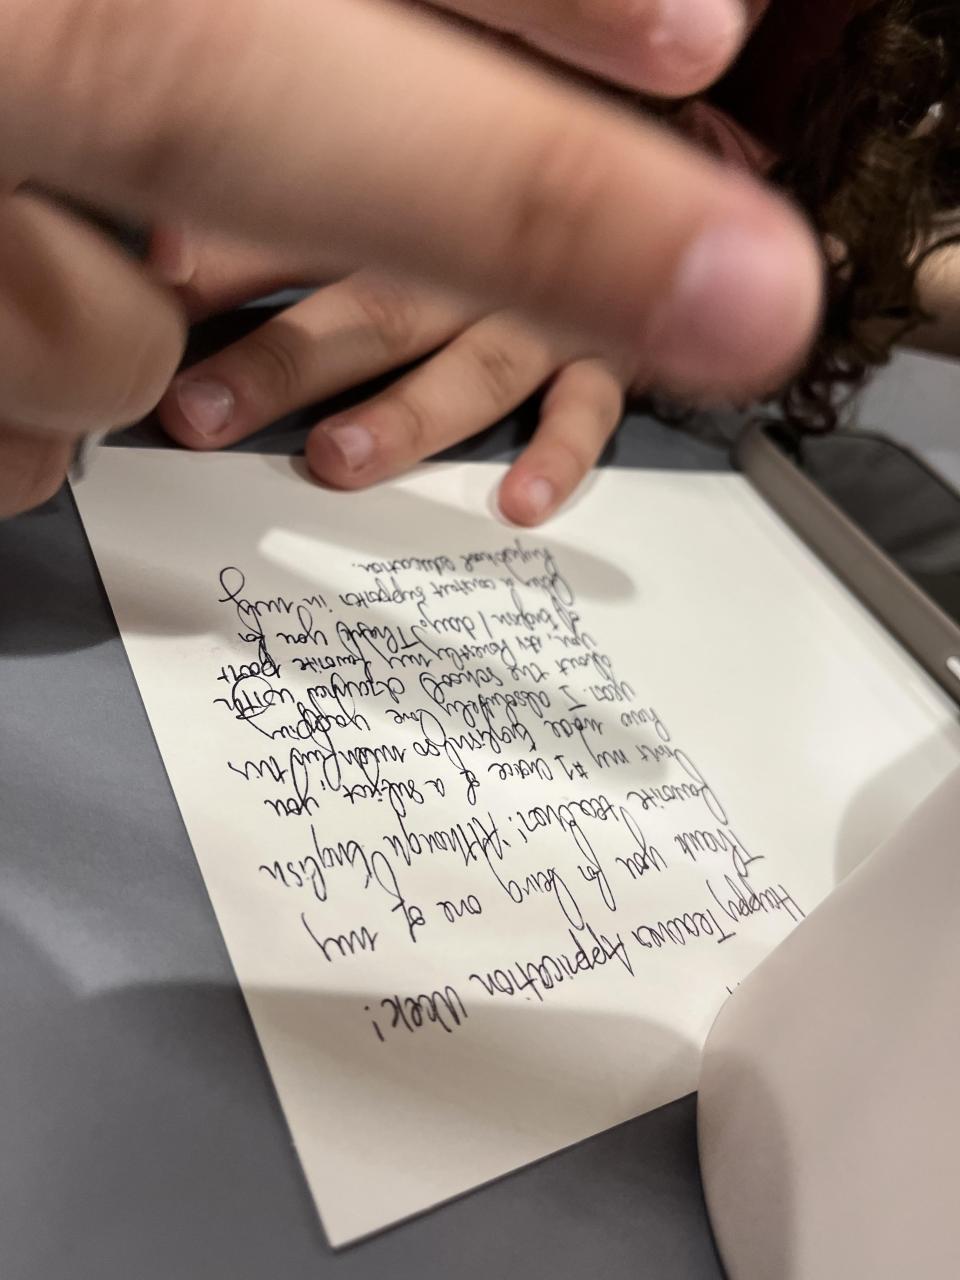 Happy Teacher Appriciation Week!
Thank you for being one of my
favorite teachers! Although English
isn't my #1 choice of a subject you
have made English so much fun this
year. I absolutely love yapping
about the school with
you, it's honestly my favorite part
of English / day. Thank you for
being a constant supporter in my
highschool education.